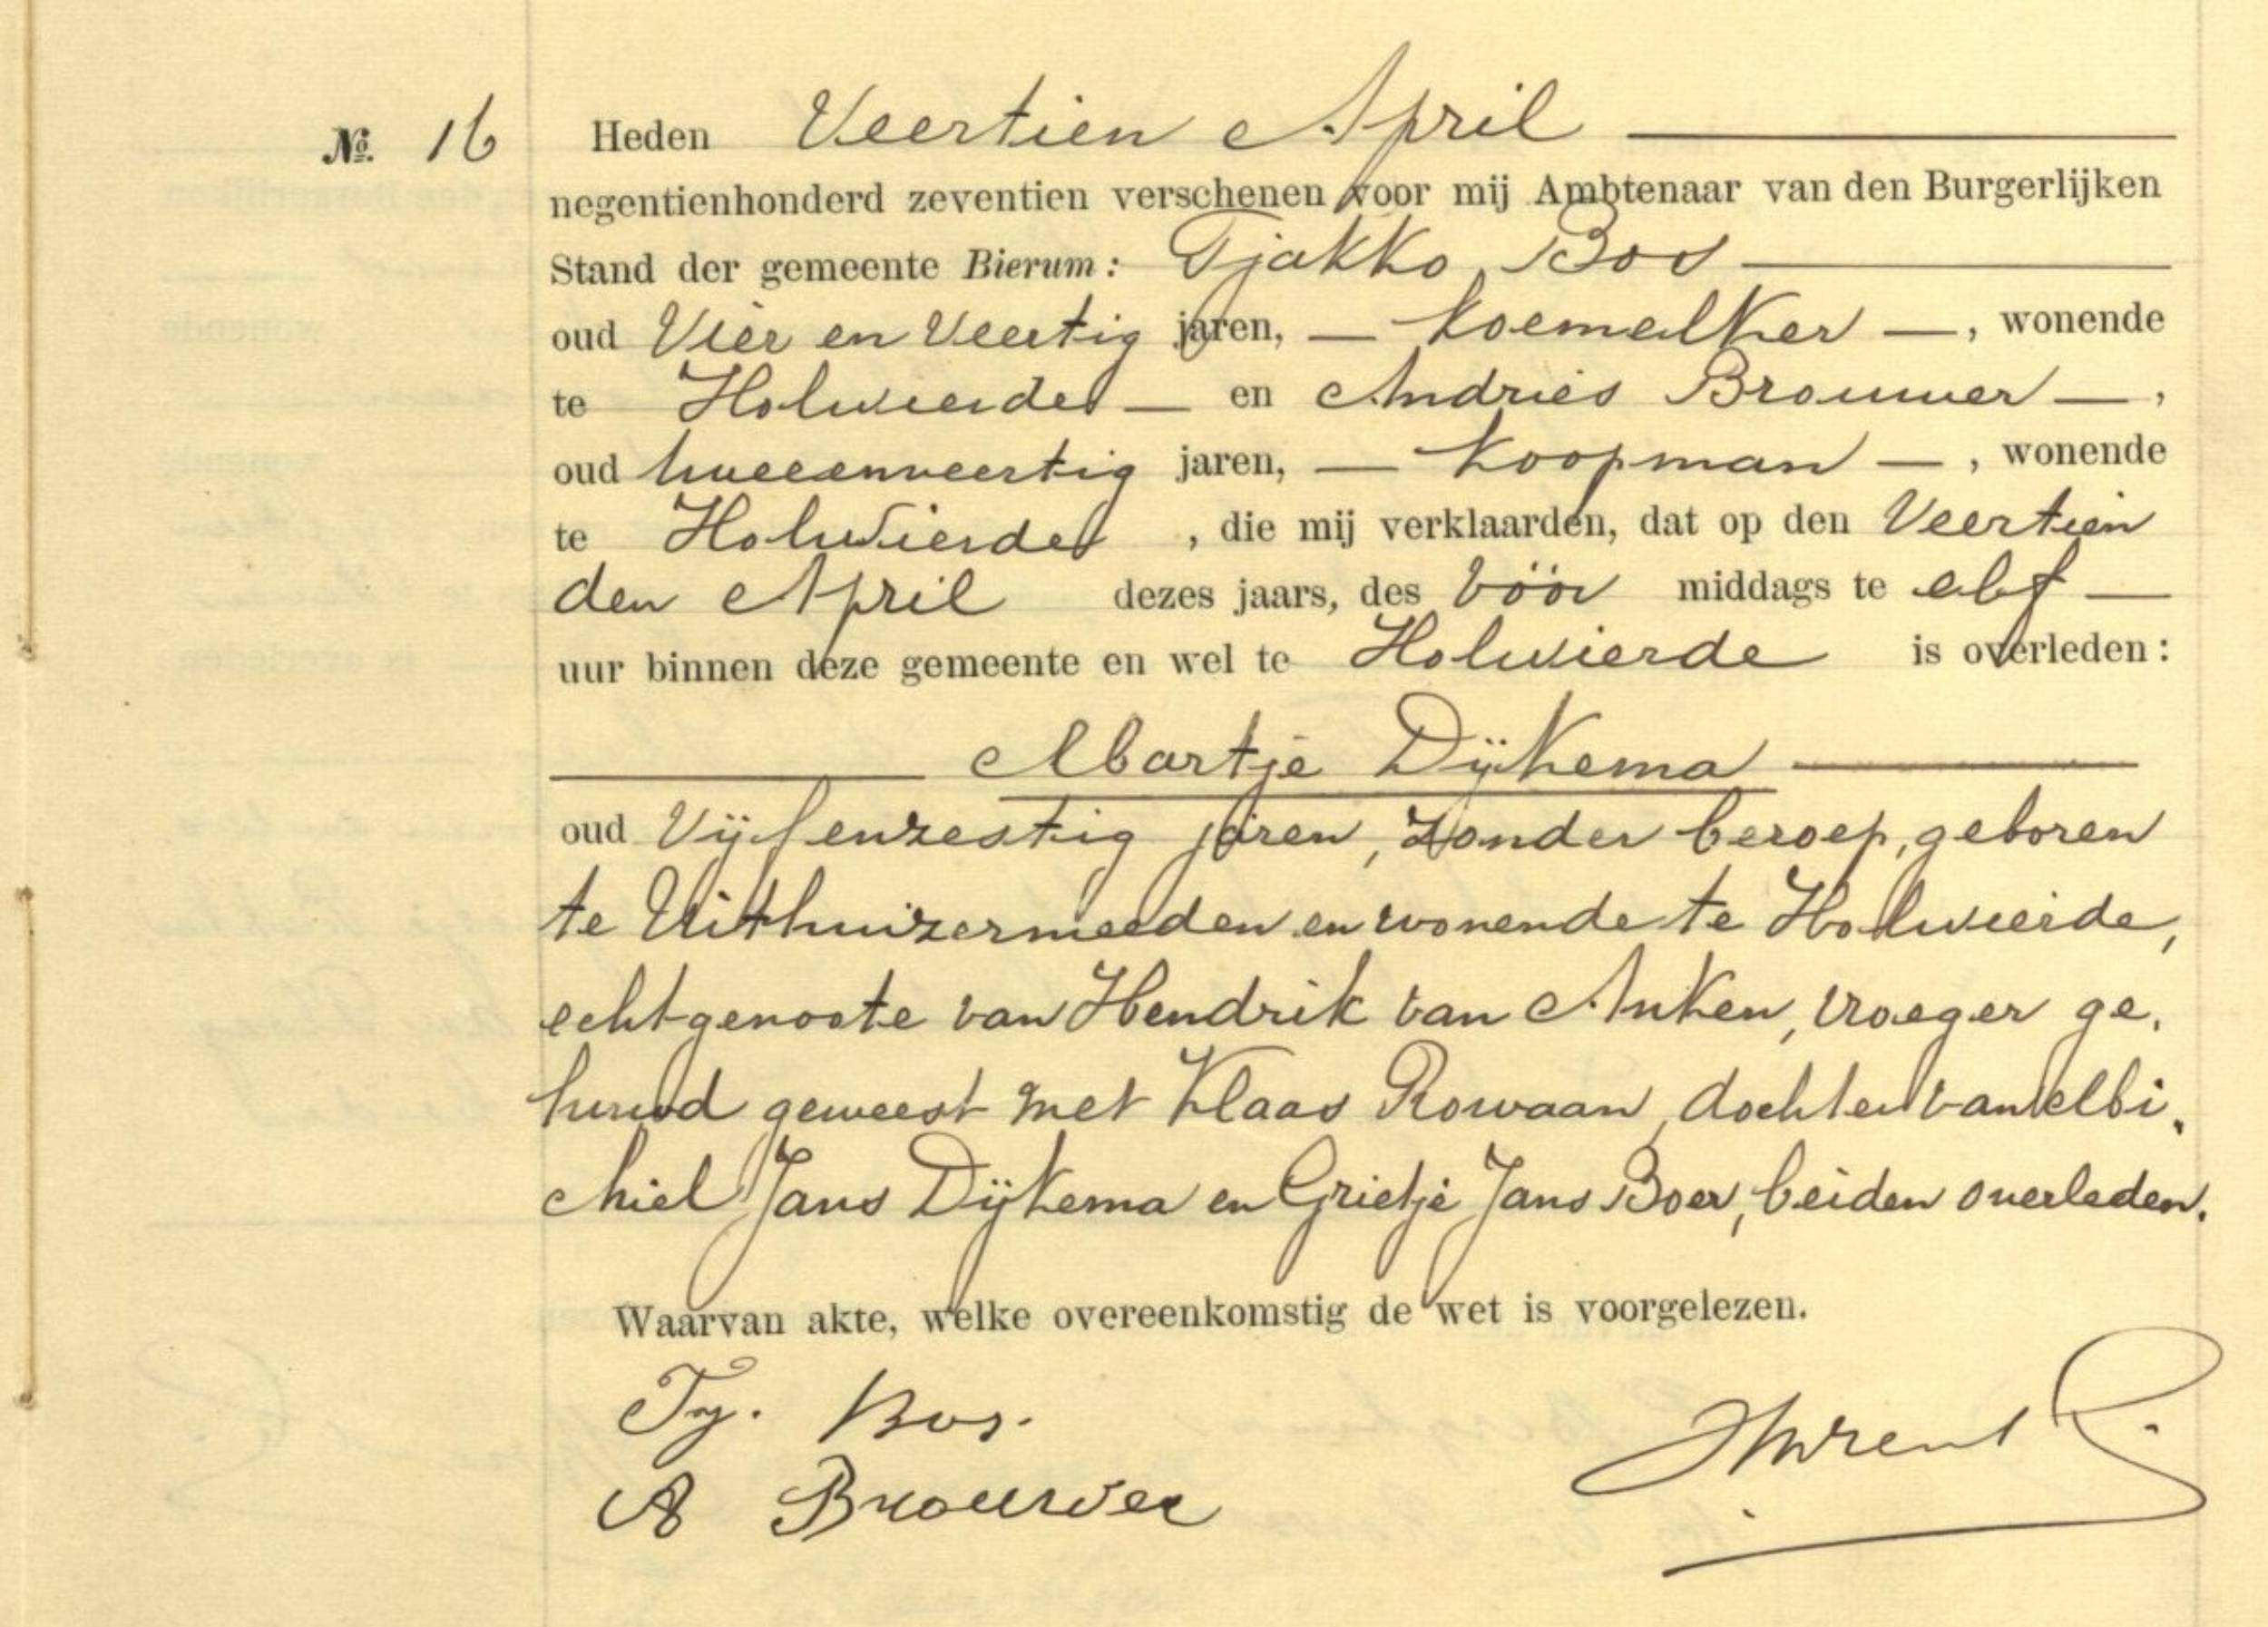 No. 16 Heden Veertien April
negentienhonderd zeventien verschenen voor mij Ambtenaar van den Burgerlijken
Stand der gemeente Bierum: Tjakko Bos
oud Vier en Veertig jaren, — Koemelker —, wonende
te Holwierde — en Andries Brouwer —,
oud tweeenveertig jaren, — Koopman —, wonende
te Holwierde, die mij verklaarden, dat op den Veertien
den April dezes jaars, des vöör middags te elf —
uur binnen deze gemeente en wel te Holwierde is overleden:
Martje Dijkema
oud Vijfenzestig jaren, zonder beroep, geboren
te Uithuizermeeden en wonende te Holwierde,
echtgenoote van Hendrik van Anken, vroeger ge.
huwd geweest met Klaas Rowaan, dochter van Mi.
chiel Jans Dijkema en Grietje Jans Boer, beiden overleden.
Waarvan akte, welke overeenkomstig de wet is voorgelezen.
Tj. Bos.
A Brouwer